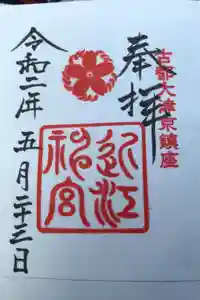 奉拝
古都大津京鎮座
近江神宮
令和二年五月二十三日